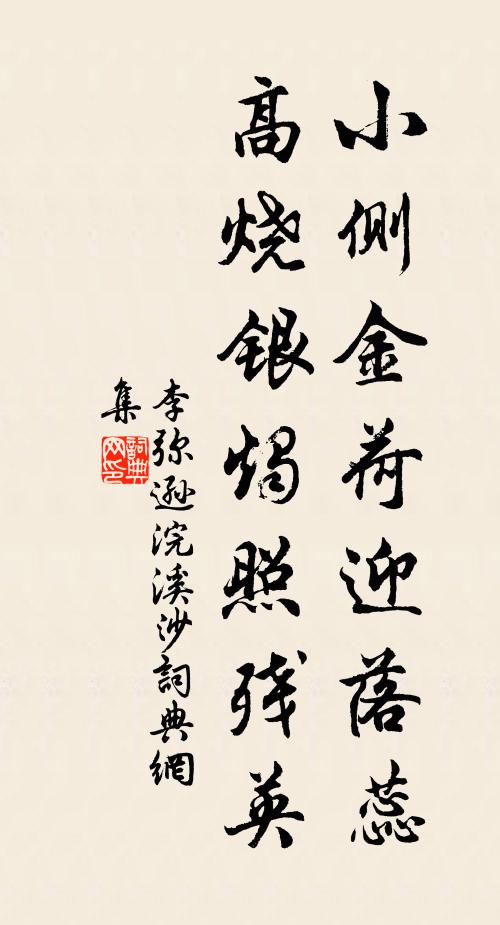 小侧金荷迎落蕊
高烧银烛照残英
李弥逊浣溪沙詞典網
集
詞典网印